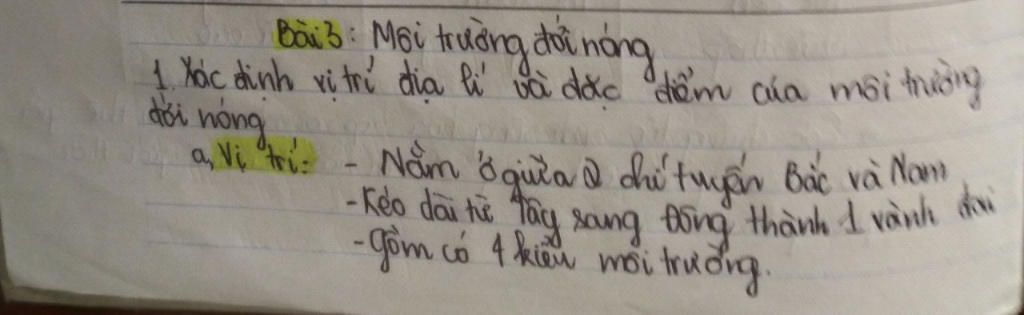 Bài 3: Môi trường đới nóng
1. Xác định vị trí địa lí và đặc điểm của môi trường
đới nóng
a, Vị trí: - Nằm ở giữa 2 chí tuyến Bắc và Nam
- Kéo dài từ Tây sang Đông thành 1 vành đai
- Gồm có 4 kiểu môi trường.